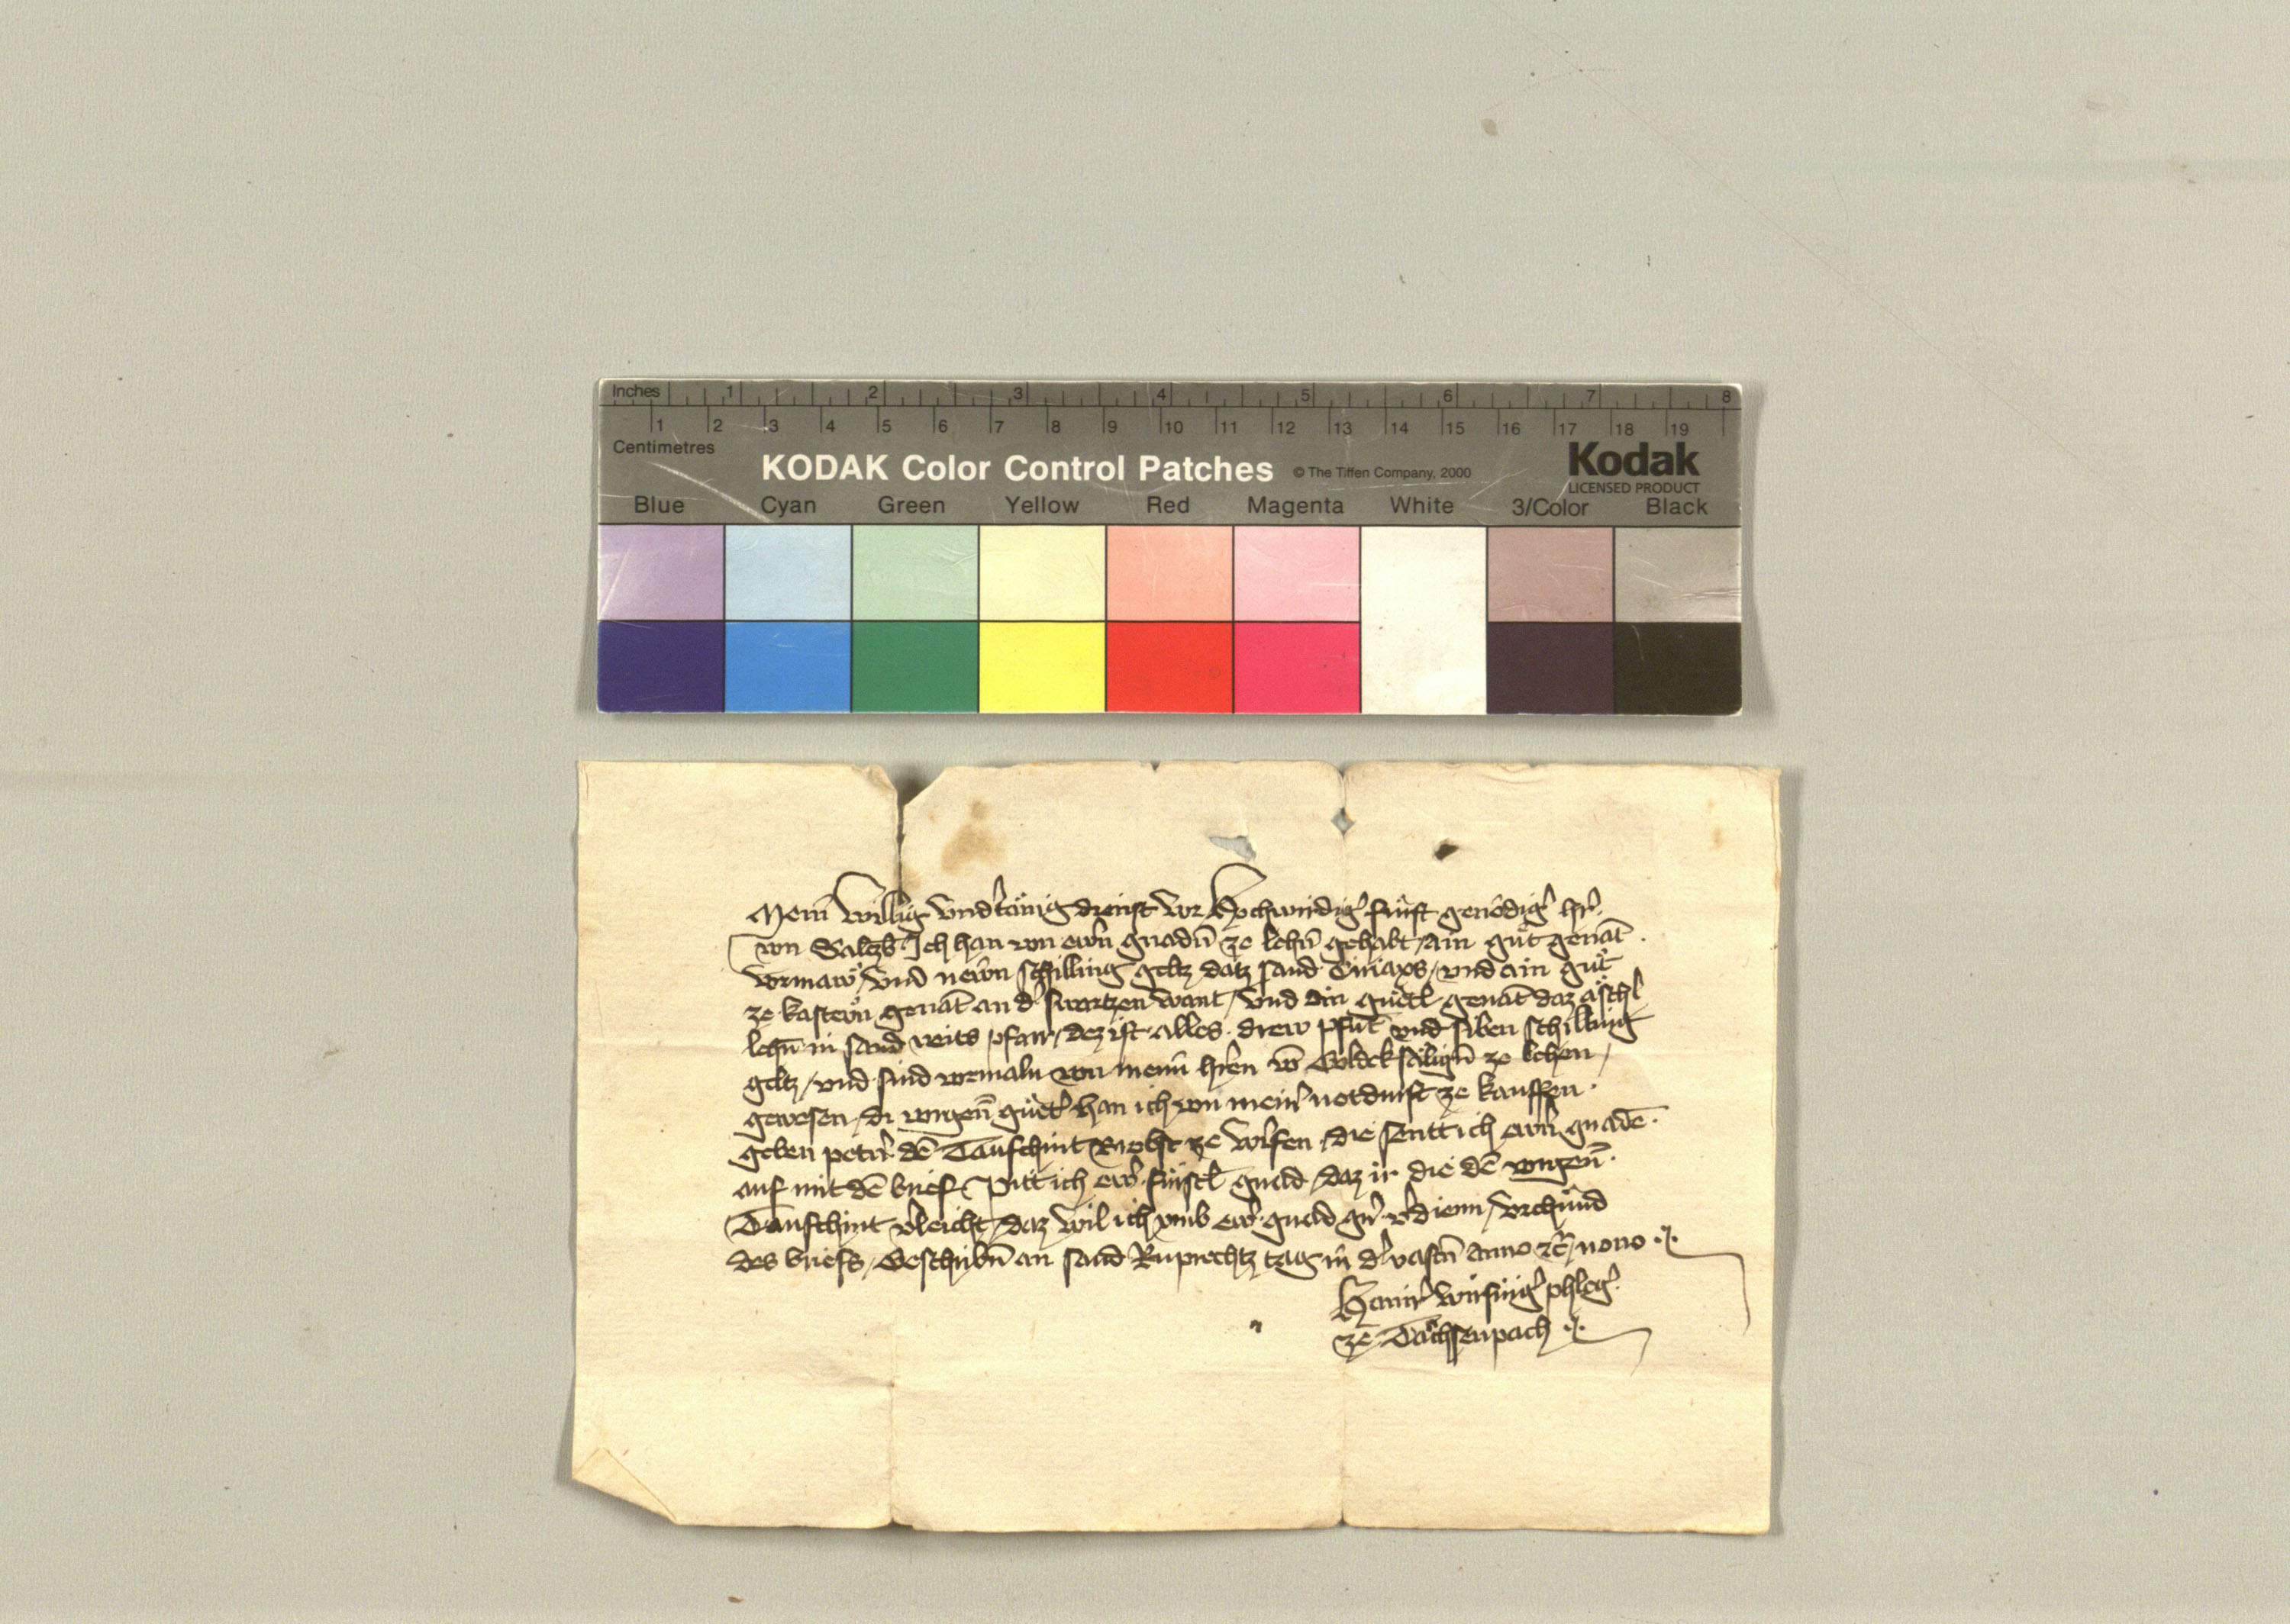 Inches 1 2 3 4 5 6 7 8
1 2 3 4 5 6 7 8 9 10 11 12 13 14 15 16 17 18 19
Centimetres
KODAK Color Control Patches © The Tiffen Company, 2000 Kodak
LICENSED PRODUCT
Blue Cyan Green Yellow Red Magenta White 3/Color Black
Mein willig vnd'tänig dienst vor Hochwirdig' fürst genödig' h'r
von Salzb Ich han von ewrn gnadn̄ ze lehn̄ gehabt / ain gůt genāt
vnd newn schilling geltz datz sand / vnd ain gůt
ze genāt an d' swartzen want / vnd ain gůetl genāt daz
lehn̄ in sand veits pfarr / dez ist alles drew pfūt vnd siben schilling
geltz / vnd sind vormaln von meinn h'ren vō Goldek sälign̄ ze lehen /
gewesen / di vorgen̄ gůet' han ich von mein' notdurft ze kauffen
geben pet'n dē Taufchint ze die sentt ich ewrn gnadē
auf mit dē brief Pitt ich ewr fürstl gnad / daz ir die dē vorgen̄
Taufchint v'leicht / daz wil ich vmb ewr gnad gn' v'dienn / vrchund
des briefs / Geschribn̄ an sand Ruprechtz tag in d' vastn̄ anno nono
phleg'
ze Tächsenpach